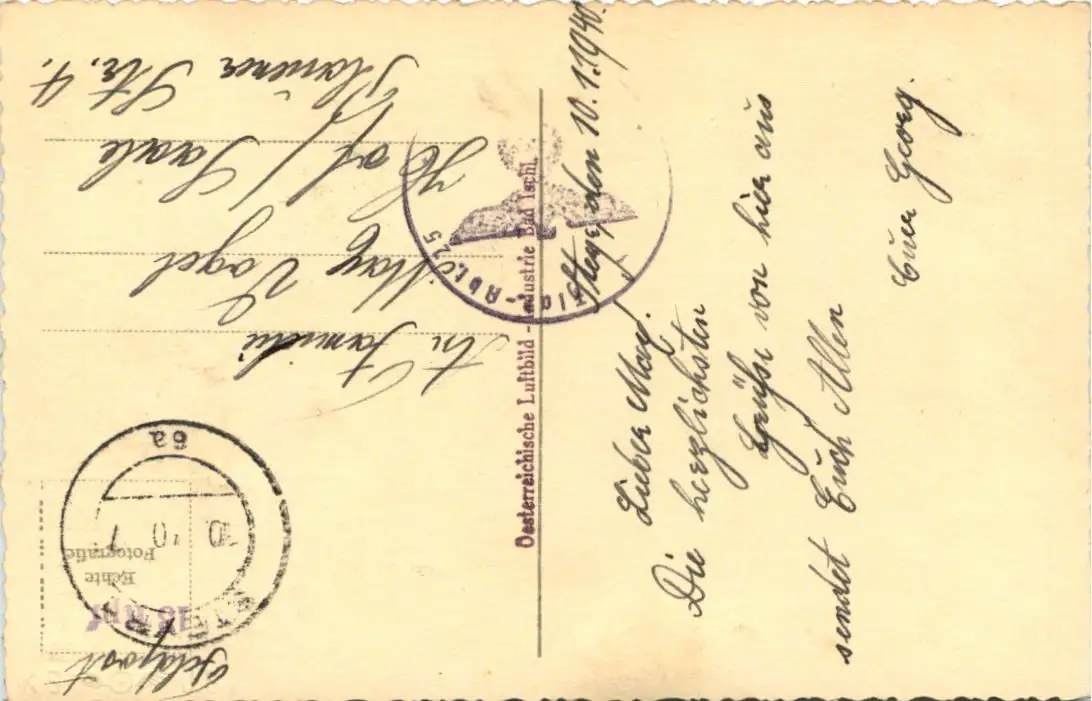 Steyr, den 10.1.1940.
Lieber Max!
Die herzlichsten
Grüße von hier aus
sendet Euch Allen
Euer Georg.
Feldpost
An Familie
Max Vogel
Hof/Saale
Str. 4.
Echte
Fotografie
6a
Oesterreichische Luftbild-Industrie Bad Ischl